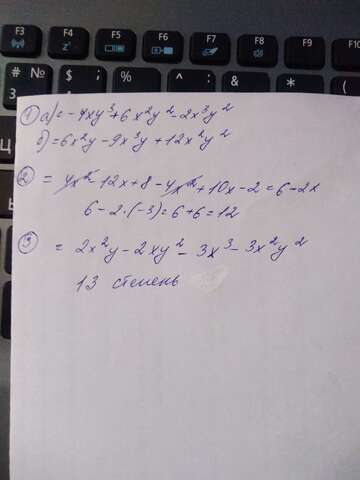 F3 F4 F5 F6 F7 F8 F9 F10
# № $ ; % : ^ & ? * (
① а) = -4xy³+6x²y²-2x³y²
б) = 6x²y-9x³y+12x²y²
② = 4x²-12x+8-4x²+10x-2=6-2x
6-2·(-3)=6+6=12
③ = 2x²y-2xy²-3x³-3x²y²
13 степень